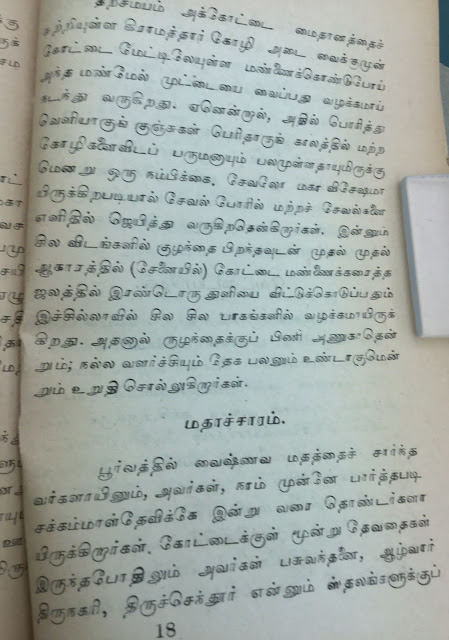 தற்சமயம் அக்கோட்டை மைதானத்தைச்
சுற்றியுள்ள கிராமத்தார் கோழி அடை வைக்குமுன்
கோட்டை மேட்டிலேயுள்ள மண்ணைக்கொண்டுபோய்
அந்த மண்மேல் முட்டையை வைப்பது வழக்கமாய்
நடந்து வருகிறது. ஏனென்றால், அதில் பொரித்து
வெளியாகுங் குஞ்சுகள் பெரிதாகுங் காலத்தில் மற்ற
கோழிகளைவிடப் பருமனாயும் பலமுள்ளதாயுமிருக்கு
மெனறு ஒரு நம்பிக்கை. சேவலோ மகா விசேஷமா
யிருக்கிறபடியால் சேவல் போரில் மற்றச் சேவல்களை
எளிதில் ஜெயித்து வருகிறதென்கிறார்கள். இன்னும்
சில விடங்களில் குழந்தை பிறந்தவுடன் முதல் முதல்
ஆகாரத்தில் (சேனையில்) கோட்டை மண்ணைக்கரைத்த
ஜலத்தில் இரண்டொரு துளியை விட்டுக்கொடுப்பதும்
இச்சில்லாவில் சில சில பாகங்களில் வழக்கமாயிருக்
கிறது. அதனால் குழந்தைக்குப் பிணி அணுகாதென்
றும்; நல்ல வளர்ச்சியும் தேக பலனும் உண்டாகுமென்
றும் உறுதி சொல்லுகிறார்கள்.
மதாச்சாரம்.
பூர்வத்தில் வைஷ்ணவ மதத்தைச் சார்ந்த
வர்களாயினும், அவர்கள், நாம் முன்னே பார்த்தபடி
சக்கம்மாள்தேவிக்கே இன்று வரை தொண்டர்களா
யிருக்கிறார்கள். கோட்டைக்குள் மூன்று தேவதைகள்
இருந்தபோதிலும் அவர்கள் பசுவந்தனை, ஆழ்வார்
திருநகரி, திருச்செந்தூர் என்னும் ஸ்தலங்களுக்குப்
18